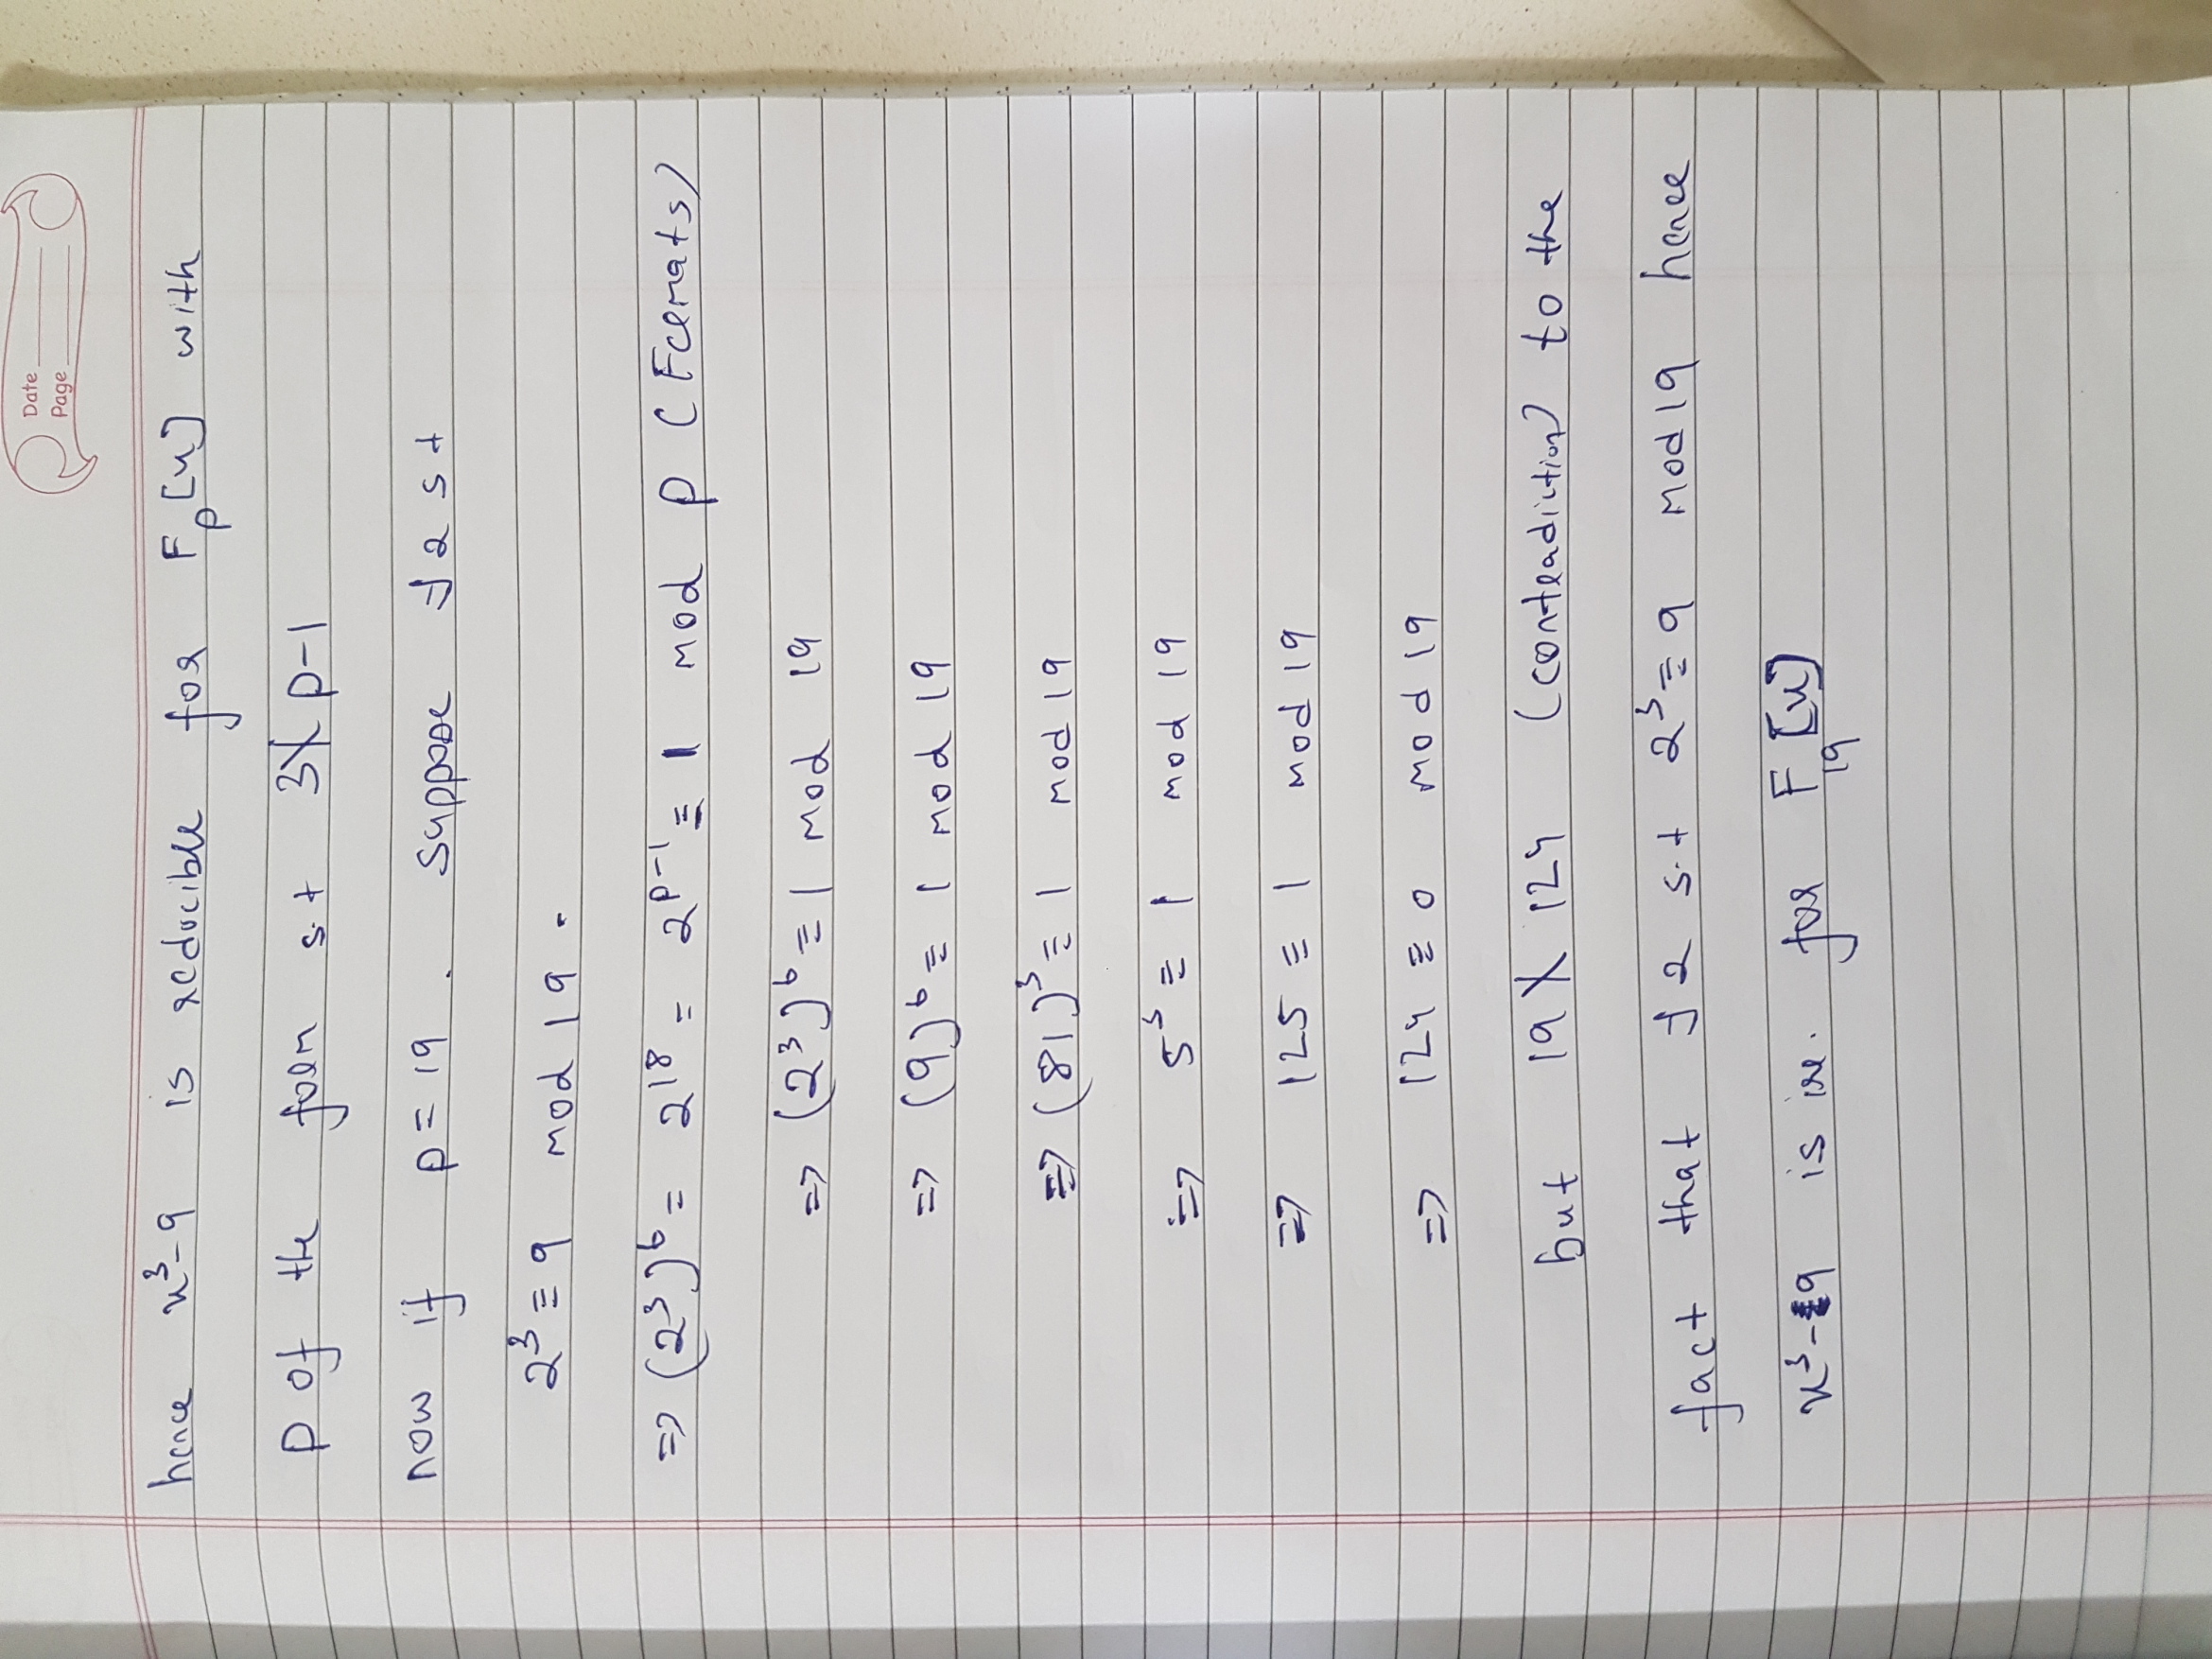 Date
Page
hence x³-9 is reducible for F_p[x] with
p of the form s.t 3∤p-1
now if p=19. Suppose ∃ r s.t
r³≡9 mod 19.
⇒ (r³)⁶ = r¹⁸ = r^(p-1) ≡ 1 mod p (Fermats)
⇒ (r³)⁶ ≡ 1 mod 19
⇒ (9)⁶ ≡ 1 mod 19
⇒ (81)³ ≡ 1 mod 19
⇒ 5³ ≡ 1 mod 19
⇒ 125 ≡ 1 mod 19
⇒ 124 ≡ 0 mod 19
but 19∤124 (contradiction) to the
fact that ∃ r s.t r³≡9 mod 19 hence
x³-9 is irr. for F_19[x]